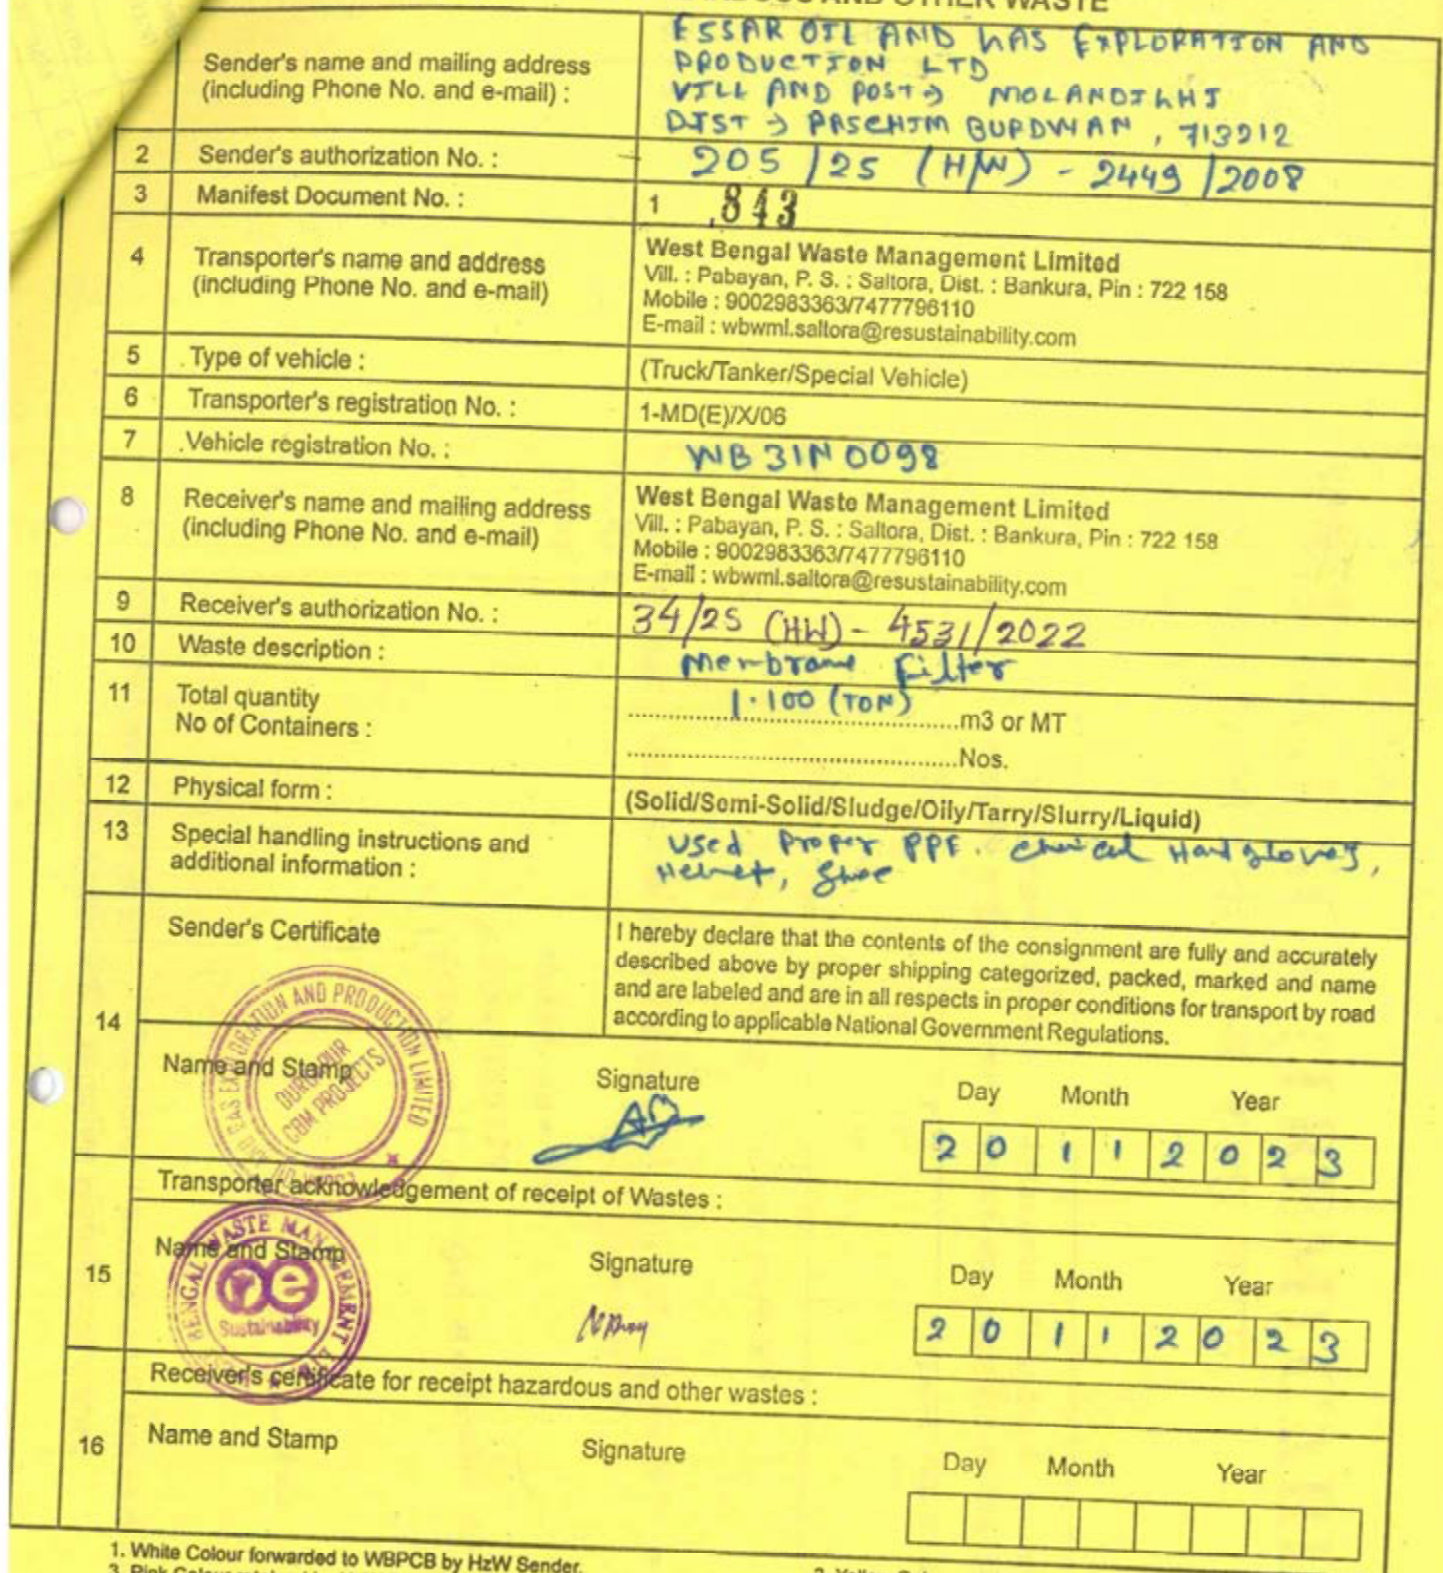 AND OTHER WASTE
Sender's name and mailing address
(including Phone No. and e-mail) :
ESSAR OIL AND GAS EXPLORATION AND
PRODUCTION LTD
VILL AND POST → MOLANDIGHI
DIST → PASCHIM BURDWAN , 713212
2 Sender's authorization No. : 205 /25 (HW) - 2449 /2008
3 Manifest Document No. : 1 843
4 Transporter's name and address
(including Phone No. and e-mail)
West Bengal Waste Management Limited
Vill. : Pabayan, P. S. : Saltora, Dist. : Bankura, Pin : 722 158
Mobile : 9002983363/7477796110
E-mail : wbwml.saltora@resustainability.com
5 Type of vehicle : (Truck/Tanker/Special Vehicle)
6 Transporter's registration No. : 1-MD(E)/X/06
7 Vehicle registration No. : WB 31N 0098
8 Receiver's name and mailing address
(including Phone No. and e-mail)
West Bengal Waste Management Limited
Vill. : Pabayan, P. S. : Saltora, Dist. : Bankura, Pin : 722 158
Mobile : 9002983363/7477796110
E-mail : wbwml.saltora@resustainability.com
9 Receiver's authorization No. : 34/25 (HW) - 4531/2022
10 Waste description : Membrane Filter
11 Total quantity
No of Containers :
1.100 (TON) m3 or MT
Nos.
12 Physical form : (Solid/Semi-Solid/Sludge/Oily/Tarry/Slurry/Liquid)
13 Special handling instructions and
additional information :
Used Proper PPE. chemical Hand gloves,
Helmet, Shoe
14 Sender's Certificate
I hereby declare that the contents of the consignment are fully and accurately
described above by proper shipping categorized, packed, marked and name
and are labeled and are in all respects in proper conditions for transport by road
according to applicable National Government Regulations.
GAS EXPLORATION AND PRODUCTION LIMITED
DURGAPUR
CBM PROJECTS
Name and Stamp Signature Day Month Year
2 0 1 1 2 0 2 3
Transporter acknowledgement of receipt of Wastes :
15 Name and Stamp Signature Day Month Year
BENGAL WASTE MANAGEMENT LTD
re
Sustainability
2 0 1 1 2 0 2 3
Receiver's certificate for receipt hazardous and other wastes :
16 Name and Stamp Signature Day Month Year
1. White Colour forwarded to WBPCB by HzW Sender.